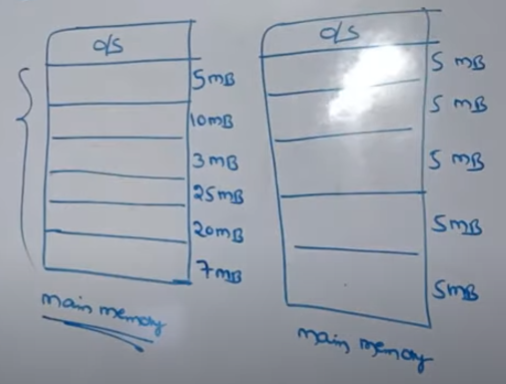 o/s
5mB
10mB
3mB
25mB
20mB
7mB
main memory
o/s
5 mB
5 mB
5 mB
5mB
5mB
main memory